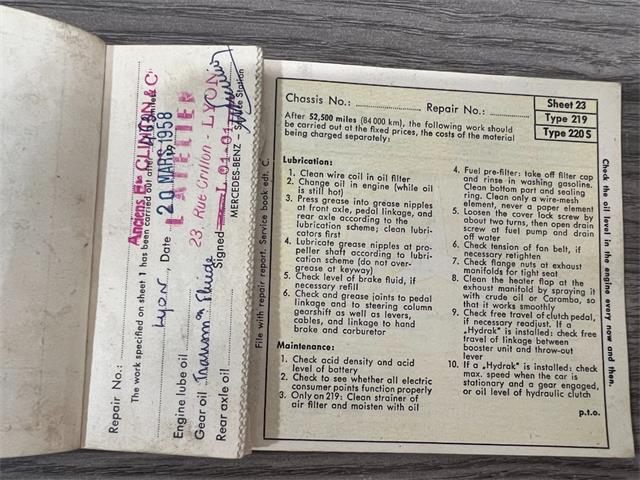 Repair No.:
The work specified on sheet 1 has been carried out after
Anciens Ets
& C
Lyon, Date 20 MARS 1958
L'ATELIER
23, Rue Crillon - LYON
Signed
MERCEDES-BENZ - Service Station
Engine lube oil
Gear oil
Rear axle oil
File with repair report. Service book edt. C.
Chassis No.: Repair No.:
Sheet 23
Type 219
Type 220 S
After 52,500 miles (84 000 km), the following work should
be carried out at the fixed prices, the costs of the material
being charged separately:
Lubrication:
1. Clean wire coil in oil filter
2. Change oil in engine (while oil
is still hot)
3. Press grease into grease nipples
at front axle, pedal linkage, and
rear axle according to the
lubrication scheme; clean lubri-
cators first
4. Lubricate grease nipples at pro-
peller shaft according to lubri-
cation scheme (do not over-
grease at keyway)
5. Check level of brake fluid, if
necessary refill
6. Check and grease joints to pedal
linkage and to steering column
gearshift as well as levers,
cables, and linkage to hand
brake and carburetor
Maintenance:
1. Check acid density and acid
level of battery
2. Check to see whether all electric
consumer points function properly
3. Only on 219: Clean strainer of
air filter and moisten with oil
4. Fuel pre-filter: take off filter cap
and rinse in washing gasoline.
Clean bottom part and sealing
ring. Clean only a wire-mesh
element, never a paper element
5. Loosen the cover lock screw by
about two turns, then open drain
screw at fuel pump and drain
off water
6. Check tension of fan belt, if
necessary retighten
7. Check flange nuts at exhaust
manifolds for tight seat
8. Clean the heater flap at the
exhaust manifold by spraying it
with crude oil or Caramba, so
that it works smoothly
9. Check free travel of clutch pedal,
if necessary readjust. If a
„Hydrak" is installed: check free
travel of linkage between
booster unit and throw-out
lever
10. If a „Hydrak" is installed: check
max. speed when the car is
stationary and a gear engaged,
or oil level of hydraulic clutch
p.t.o.
Check the oil level in the engine every now and then.